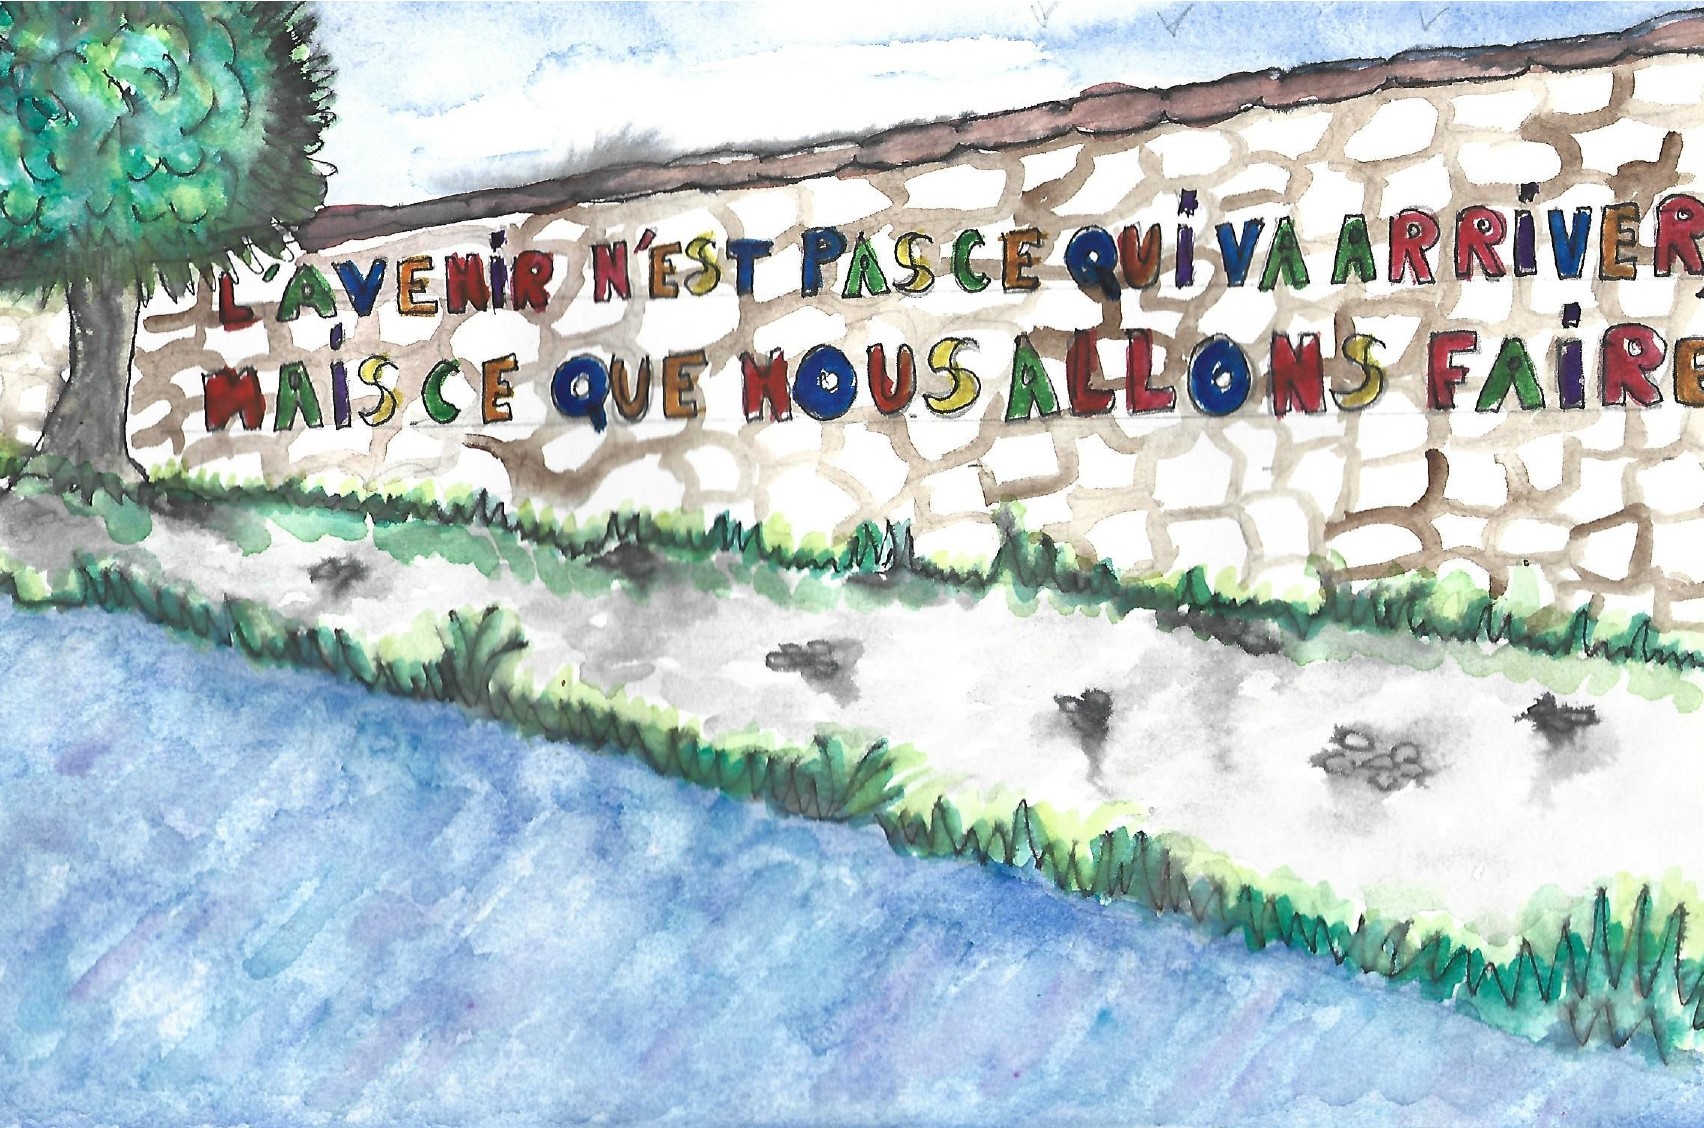 L'AVENIR N'EST PAS CE QUI VA ARRIVER,
MAIS CE QUE NOUS ALLONS FAIRE